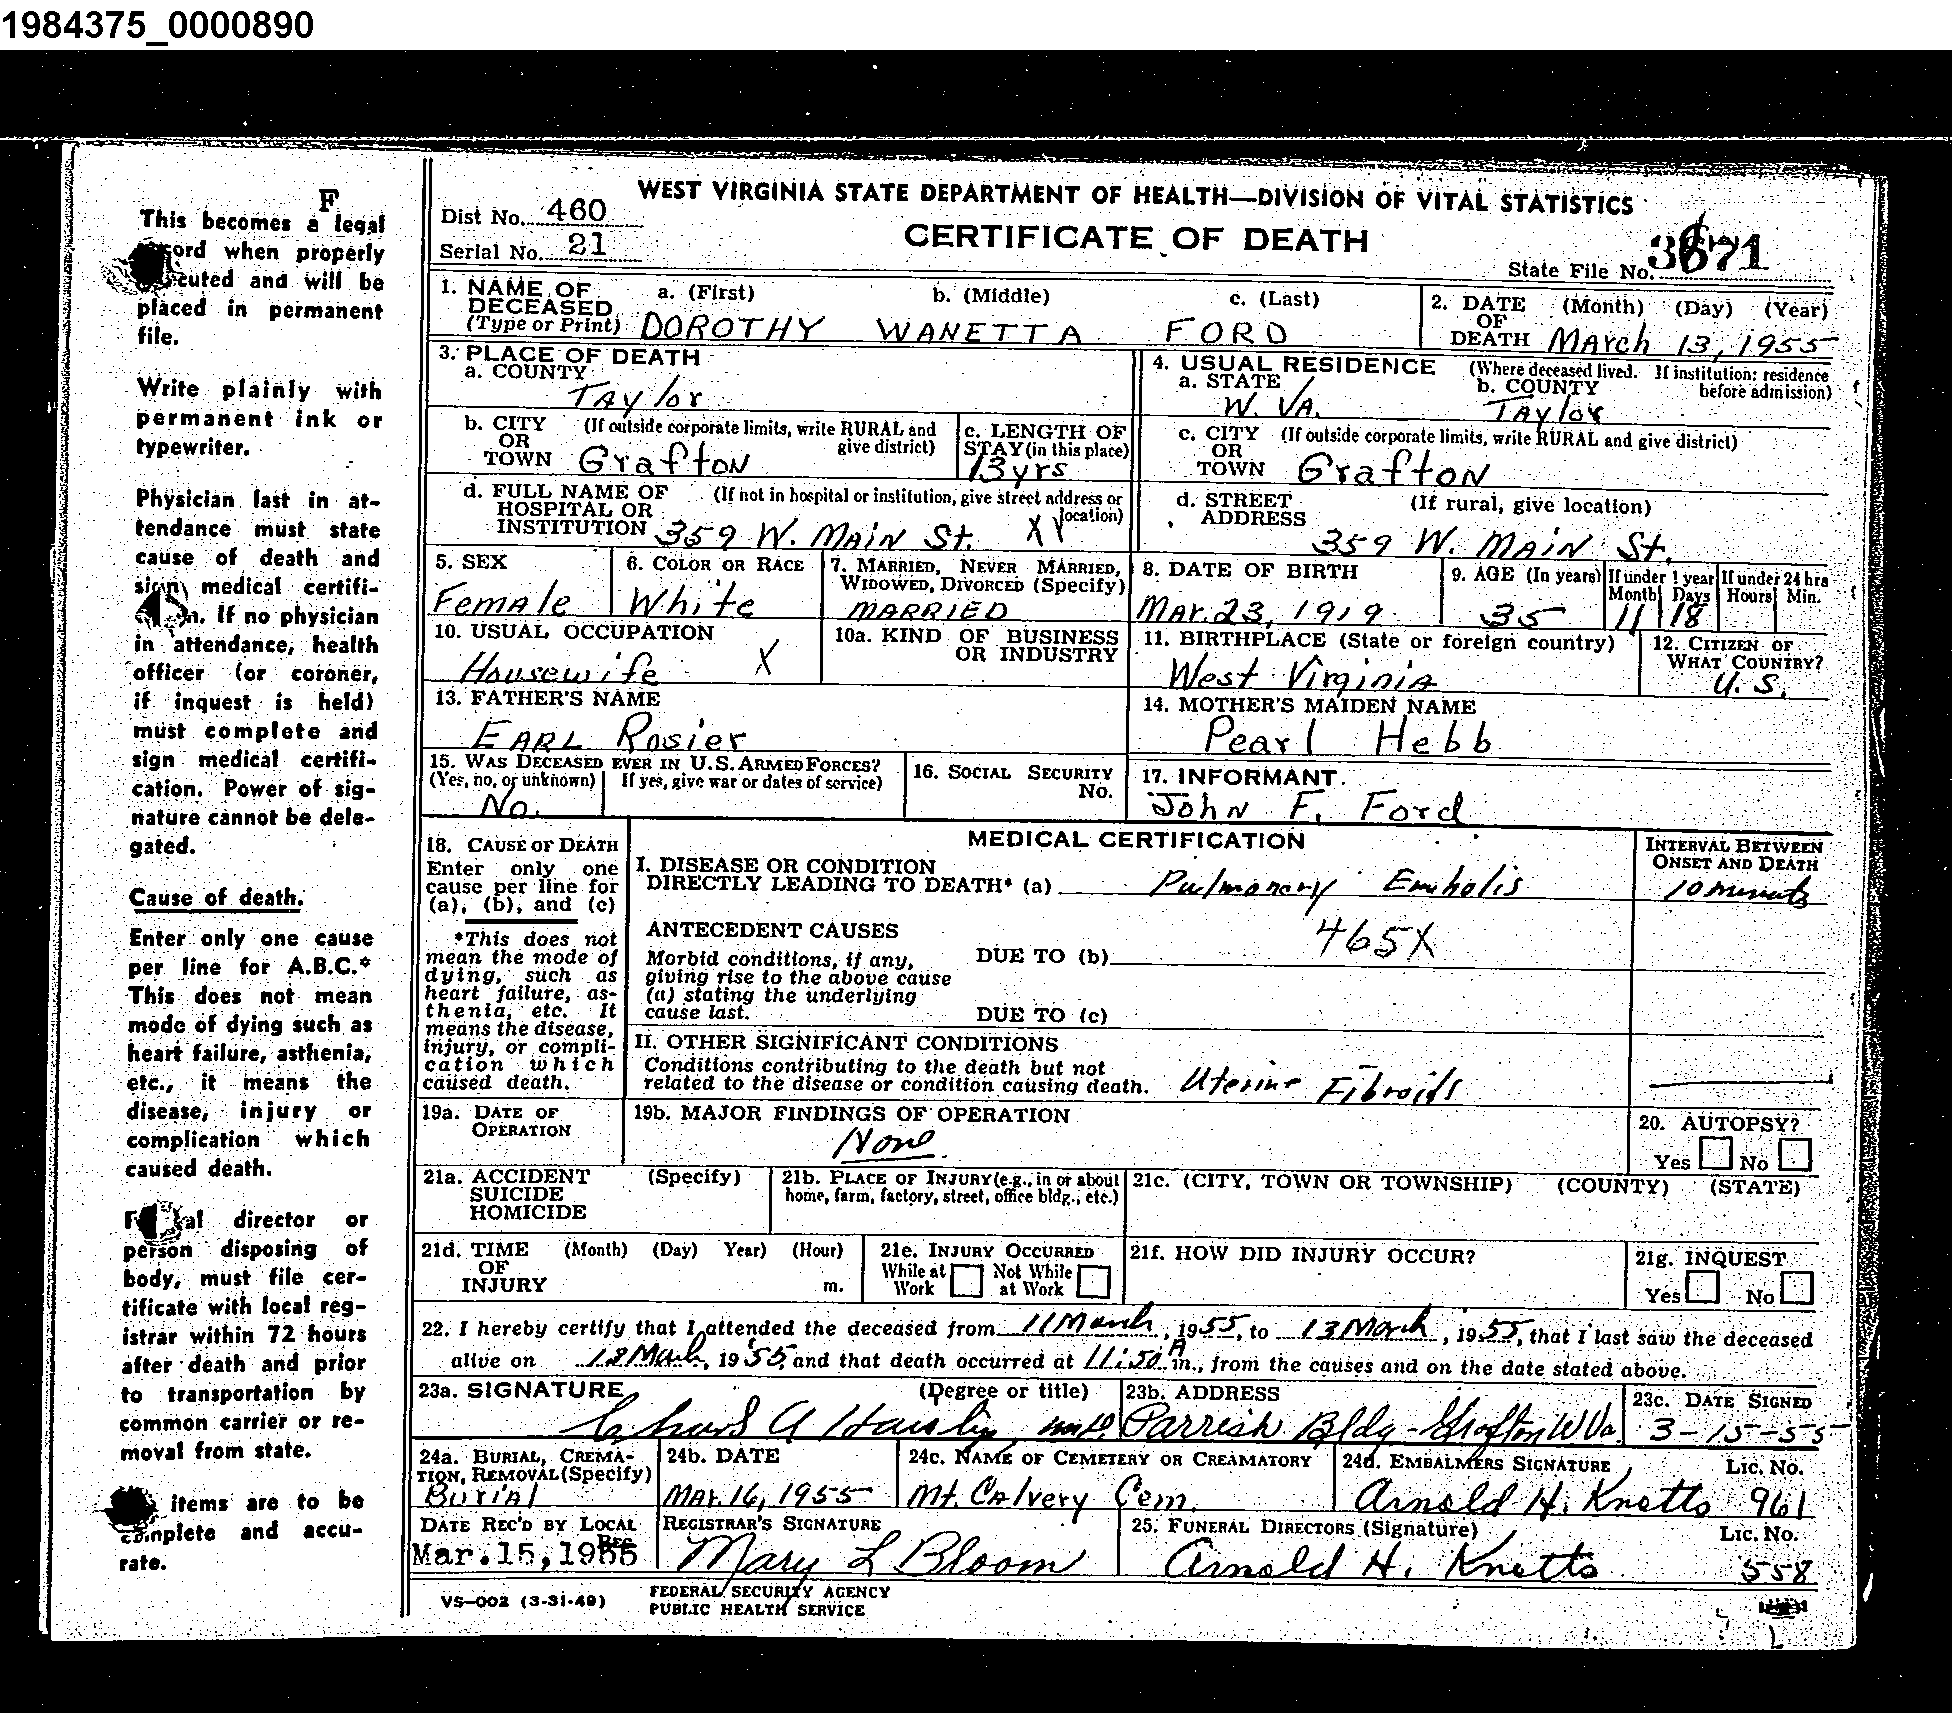 1984375_0000890
F
This becomes a legal
ord when properly
cuted and will be
placed in permanent
file.
Write plainly with
permanent ink or
typewriter.
Physician last in at-
tendance must state
cause of death and
sign medical certifi-
n. If no physician
in attendance, health
officer (or coroner,
if inquest is held)
must complete and
sign medical certifi-
cation. Power of sig-
nature cannot be dele-
gated.
Cause of death.
Enter only one cause
per line for A.B.C.*
This does not mean
mode of dying such as
heart failure, asthenia,
etc., it means the
disease, injury or
complication which
caused death.
director or
person disposing of
body, must file cer-
tificate with local reg-
istrar within 72 hours
after death and prior
to transportation by
common carrier or re-
moval from state.
items are to be
complete and accu-
rate.
WEST VIRGINIA STATE DEPARTMENT OF HEALTH—DIVISION OF VITAL STATISTICS
Dist No. 460
CERTIFICATE OF DEATH
Serial No. 21
State File No. 3671
1. NAME OF DECEASED (Type or Print) a. (First) b. (Middle) c. (Last)
DOROTHY WANETTA FORD
2. DATE OF DEATH (Month) (Day) (Year)
March 13, 1955
3. PLACE OF DEATH
a. COUNTY
Taylor
4. USUAL RESIDENCE (Where deceased lived. If institution: residence before admission)
a. STATE b. COUNTY
W. VA. Taylor
b. CITY OR TOWN (If outside corporate limits, write RURAL and give district)
Grafton
c. LENGTH OF STAY (in this place)
13 yrs
c. CITY OR TOWN (If outside corporate limits, write RURAL and give district)
Grafton
d. FULL NAME OF HOSPITAL OR INSTITUTION (If not in hospital or institution, give street address or location)
359 W. Main St.
d. STREET ADDRESS (If rural, give location)
359 W. Main St.
5. SEX
Female
6. COLOR OR RACE
White
7. MARRIED, NEVER MARRIED, WIDOWED, DIVORCED (Specify)
MARRIED
8. DATE OF BIRTH
Mar. 23, 1919
9. AGE (In years)
35
If under 1 year Month Days
11 18
If under 24 hrs Hours Min.
10. USUAL OCCUPATION
Housewife X
10a. KIND OF BUSINESS OR INDUSTRY
11. BIRTHPLACE (State or foreign country)
West Virginia
12. CITIZEN OF WHAT COUNTRY?
U. S.
13. FATHER'S NAME
EARL Rosier
14. MOTHER'S MAIDEN NAME
Pearl Hebb
15. WAS DECEASED EVER IN U.S. ARMED FORCES?
(Yes, no, or unknown) If yes, give war or dates of service)
No.
16. SOCIAL SECURITY No.
17. INFORMANT.
John F. Ford
18. CAUSE OF DEATH
Enter only one
cause per line for
(a), (b), and (c)
*This does not
mean the mode of
dying, such as
heart failure, as-
thenia, etc. It
means the disease,
injury, or compli-
cation which
caused death.
MEDICAL CERTIFICATION
INTERVAL BETWEEN ONSET AND DEATH
I. DISEASE OR CONDITION
DIRECTLY LEADING TO DEATH* (a) Pulmonary Embolis
10 minuts
ANTECEDENT CAUSES
465X
Morbid conditions, if any,
giving rise to the above cause
(a) stating the underlying
cause last.
DUE TO (b)
DUE TO (c)
II. OTHER SIGNIFICANT CONDITIONS
Conditions contributing to the death but not
related to the disease or condition causing death.
Uterine Fibroids
19a. DATE OF OPERATION
19b. MAJOR FINDINGS OF OPERATION
None
20. AUTOPSY?
Yes No
21a. ACCIDENT SUICIDE HOMICIDE (Specify)
21b. PLACE OF INJURY (e.g., in or about home, farm, factory, street, office bldg., etc.)
21c. (CITY, TOWN OR TOWNSHIP) (COUNTY) (STATE)
21d. TIME OF INJURY (Month) (Day) Year) (Hour) m.
21e. INJURY OCCURRED
While at Work Not While at Work
21f. HOW DID INJURY OCCUR?
21g. INQUEST
Yes No
22. I hereby certify that I attended the deceased from 11 March, 1955, to 13 March, 1955, that I last saw the deceased
alive on 12 March, 1955, and that death occurred at 11:50 A m., from the causes and on the date stated above.
23a. SIGNATURE (Degree or title)
A
23b. ADDRESS
Parrish Bldg - Grafton W Va.
23c. DATE SIGNED
3-15-55
24a. BURIAL, CREMA-
TION, REMOVAL (Specify)
Burial
24b. DATE
Mar. 16, 1955
24c. NAME OF CEMETERY OR CREAMATORY
Mt. Calvery Cem.
24d. EMBALMERS SIGNATURE Lic. No.
Arnold H. Knotts 961
DATE REC'D BY LOCAL REG.
Mar. 15, 1955
REGISTRAR'S SIGNATURE
Mary L Bloom
25. FUNERAL DIRECTORS (Signature) Lic. No.
Arnold H. Knotts 558
VS—002 (3-31-49)
FEDERAL SECURITY AGENCY
PUBLIC HEALTH SERVICE